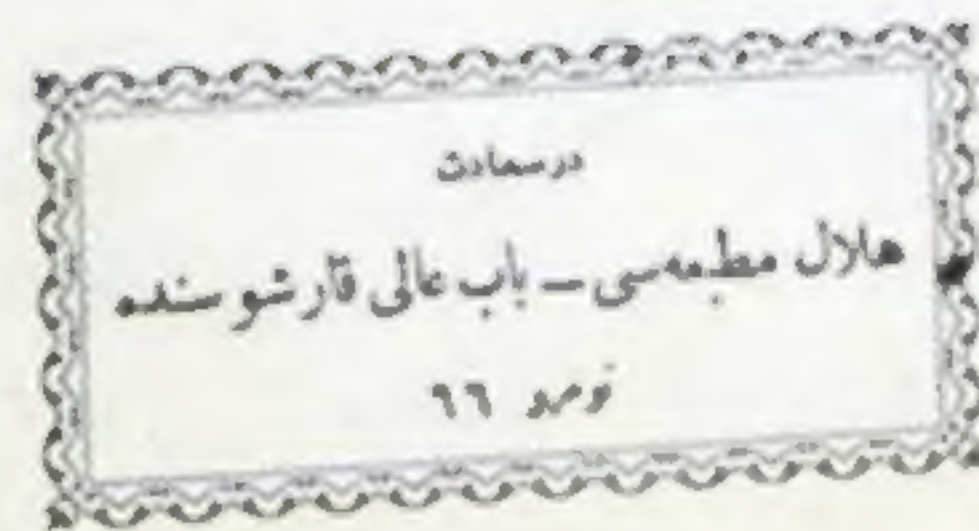 درسعادت
هلال مطبعه‌سی – باب عالی قارشوسنده
نومرو ٦٦